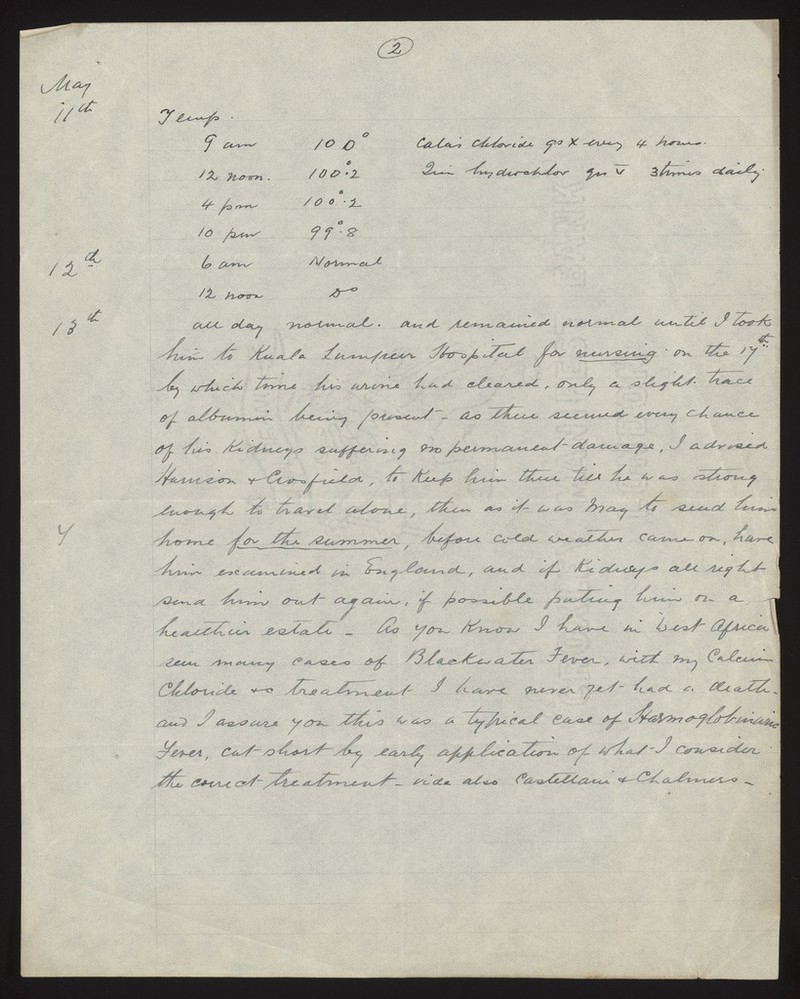 2
May
11th Temp.
9 am 100° Calcis chloride grs X every 4 hours.
12 noon. 100°.2 Quin hydrochlor grs V 3 times daily.
4 pm 100°.2
10 pm 99°.8
12th 6 am Normal
12 noon Do
13th all day normal. and remained normal until I took
him to Kuala Lumpur Hospital for nursing on the 17th
by which time his urine had cleared, only a slight trace
of albumin being present - as there seemed every chance
of his Kidneys suffering no permanent damage, I advised
Harrison & Crosfield, to keep him there till he was strong
enough to travel alone, then as it was May to send him
home for the summer, before cold weather came on, have
him examined in England, and if Kidneys all right
send him out again, if possible puting him on a
healthier estate - As you Know I have in West Africa
seen many cases of Blackwater Fever, with my Calcium
Chloride treatment I have never yet had a death.
and I assure you this was a typical case of Haemoglobinuric
Fever, cut short by early application of what I consider
the correct treatment - vide also Castellani & Chalmers -